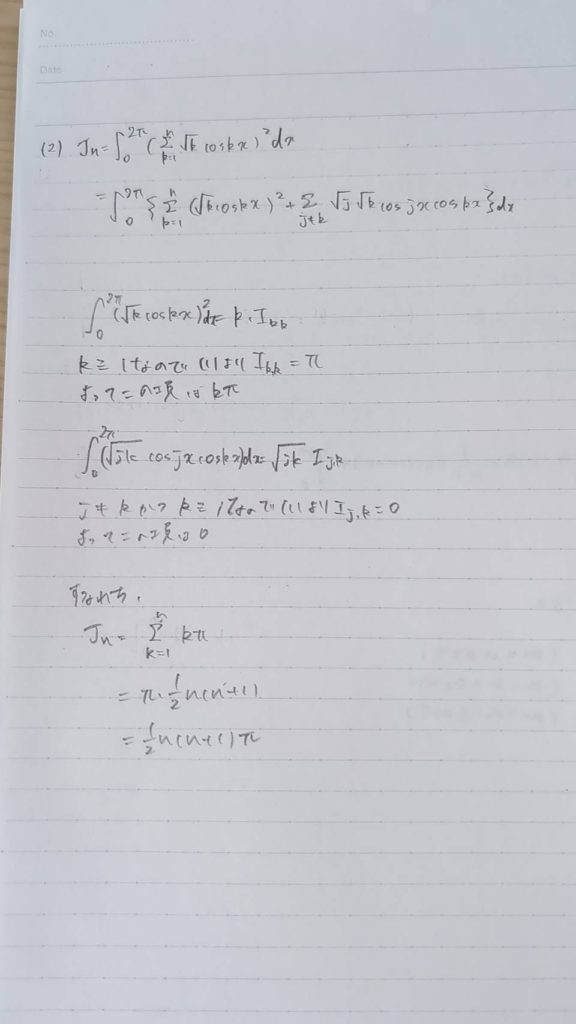 No.
Date
(2) Jn = ∫₀^{2π} (Σ_{k=1}^{n} √k cos kx)² dx
= ∫₀^{2π} { Σ_{k=1}^{n} (√k cos kx)² + Σ_{j≠k} √j √k cos jx cos kx } dx
∫₀^{2π} (√k cos kx)² dx = k・I_{k,k}
k≧1なので(1)より I_{k,k} = π
よってこの項は kπ
∫₀^{2π} (√jk cos jx cos kx) dx = √jk I_{j,k}
j≠k かつ k≧1なので(1)より I_{j,k} = 0
よってこの項は 0
すなわち、
Jn = Σ_{k=1}^{n} kπ
= π・½n(n+1)
= ½n(n+1)π